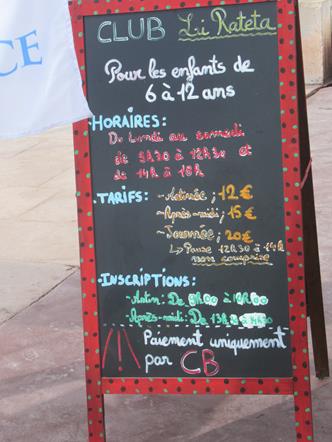 CE
CLUB Li Rateta
Pour les enfants de
6 à 12 ans
HORAIRES:
Du Lundi au samedi
de 9h30 à 12h30 et
de 14h à 18h
TARIFS: - Matinée; 12€
- Après-midi; 15€
- Journée; 20€
↳ Pause 12h30 à 14h
non comprise
INSCRIPTIONS:
- Matin: De 9h00 à
- Après-midi: De
Paiement uniquement
par CB